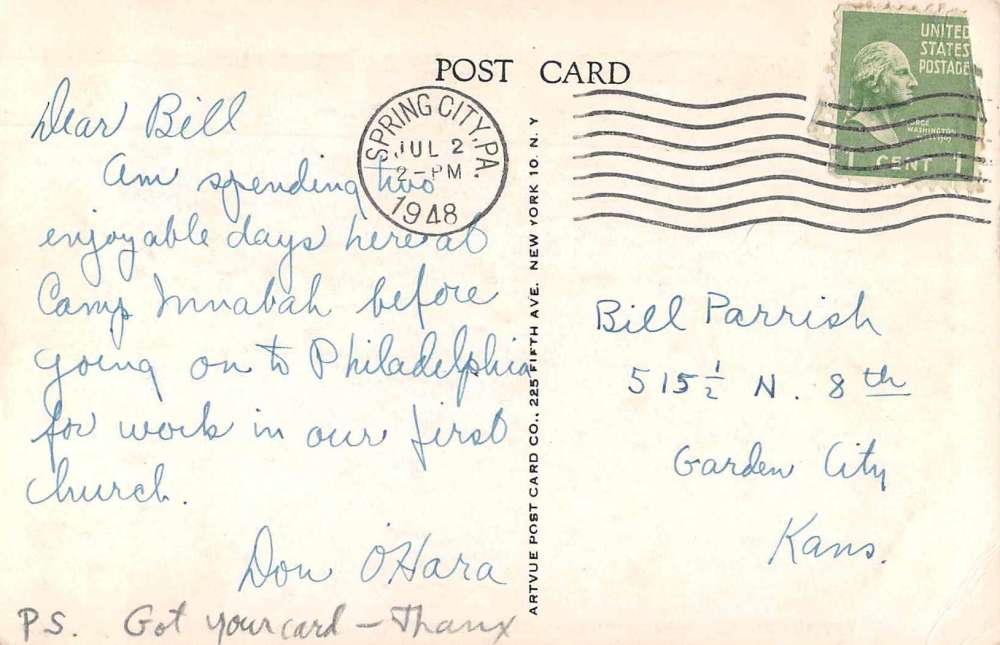 POST CARD
Dear Bill
Am spending two
enjoyable days here at
Camp Innabah before
going on to Philadelphia
for work in our first
church.
Don O'Hara
P.S. Got your card – Thanx
SPRING CITY, PA.
JUL 2
2-PM
1948
ARTVUE POST CARD CO., 225 FIFTH AVE. NEW YORK 10, N. Y
UNITED
STATES
POSTAGE
WASHINGTON
1 CENT 1
Bill Parrish
515½ N. 8th
Garden City
Kans.